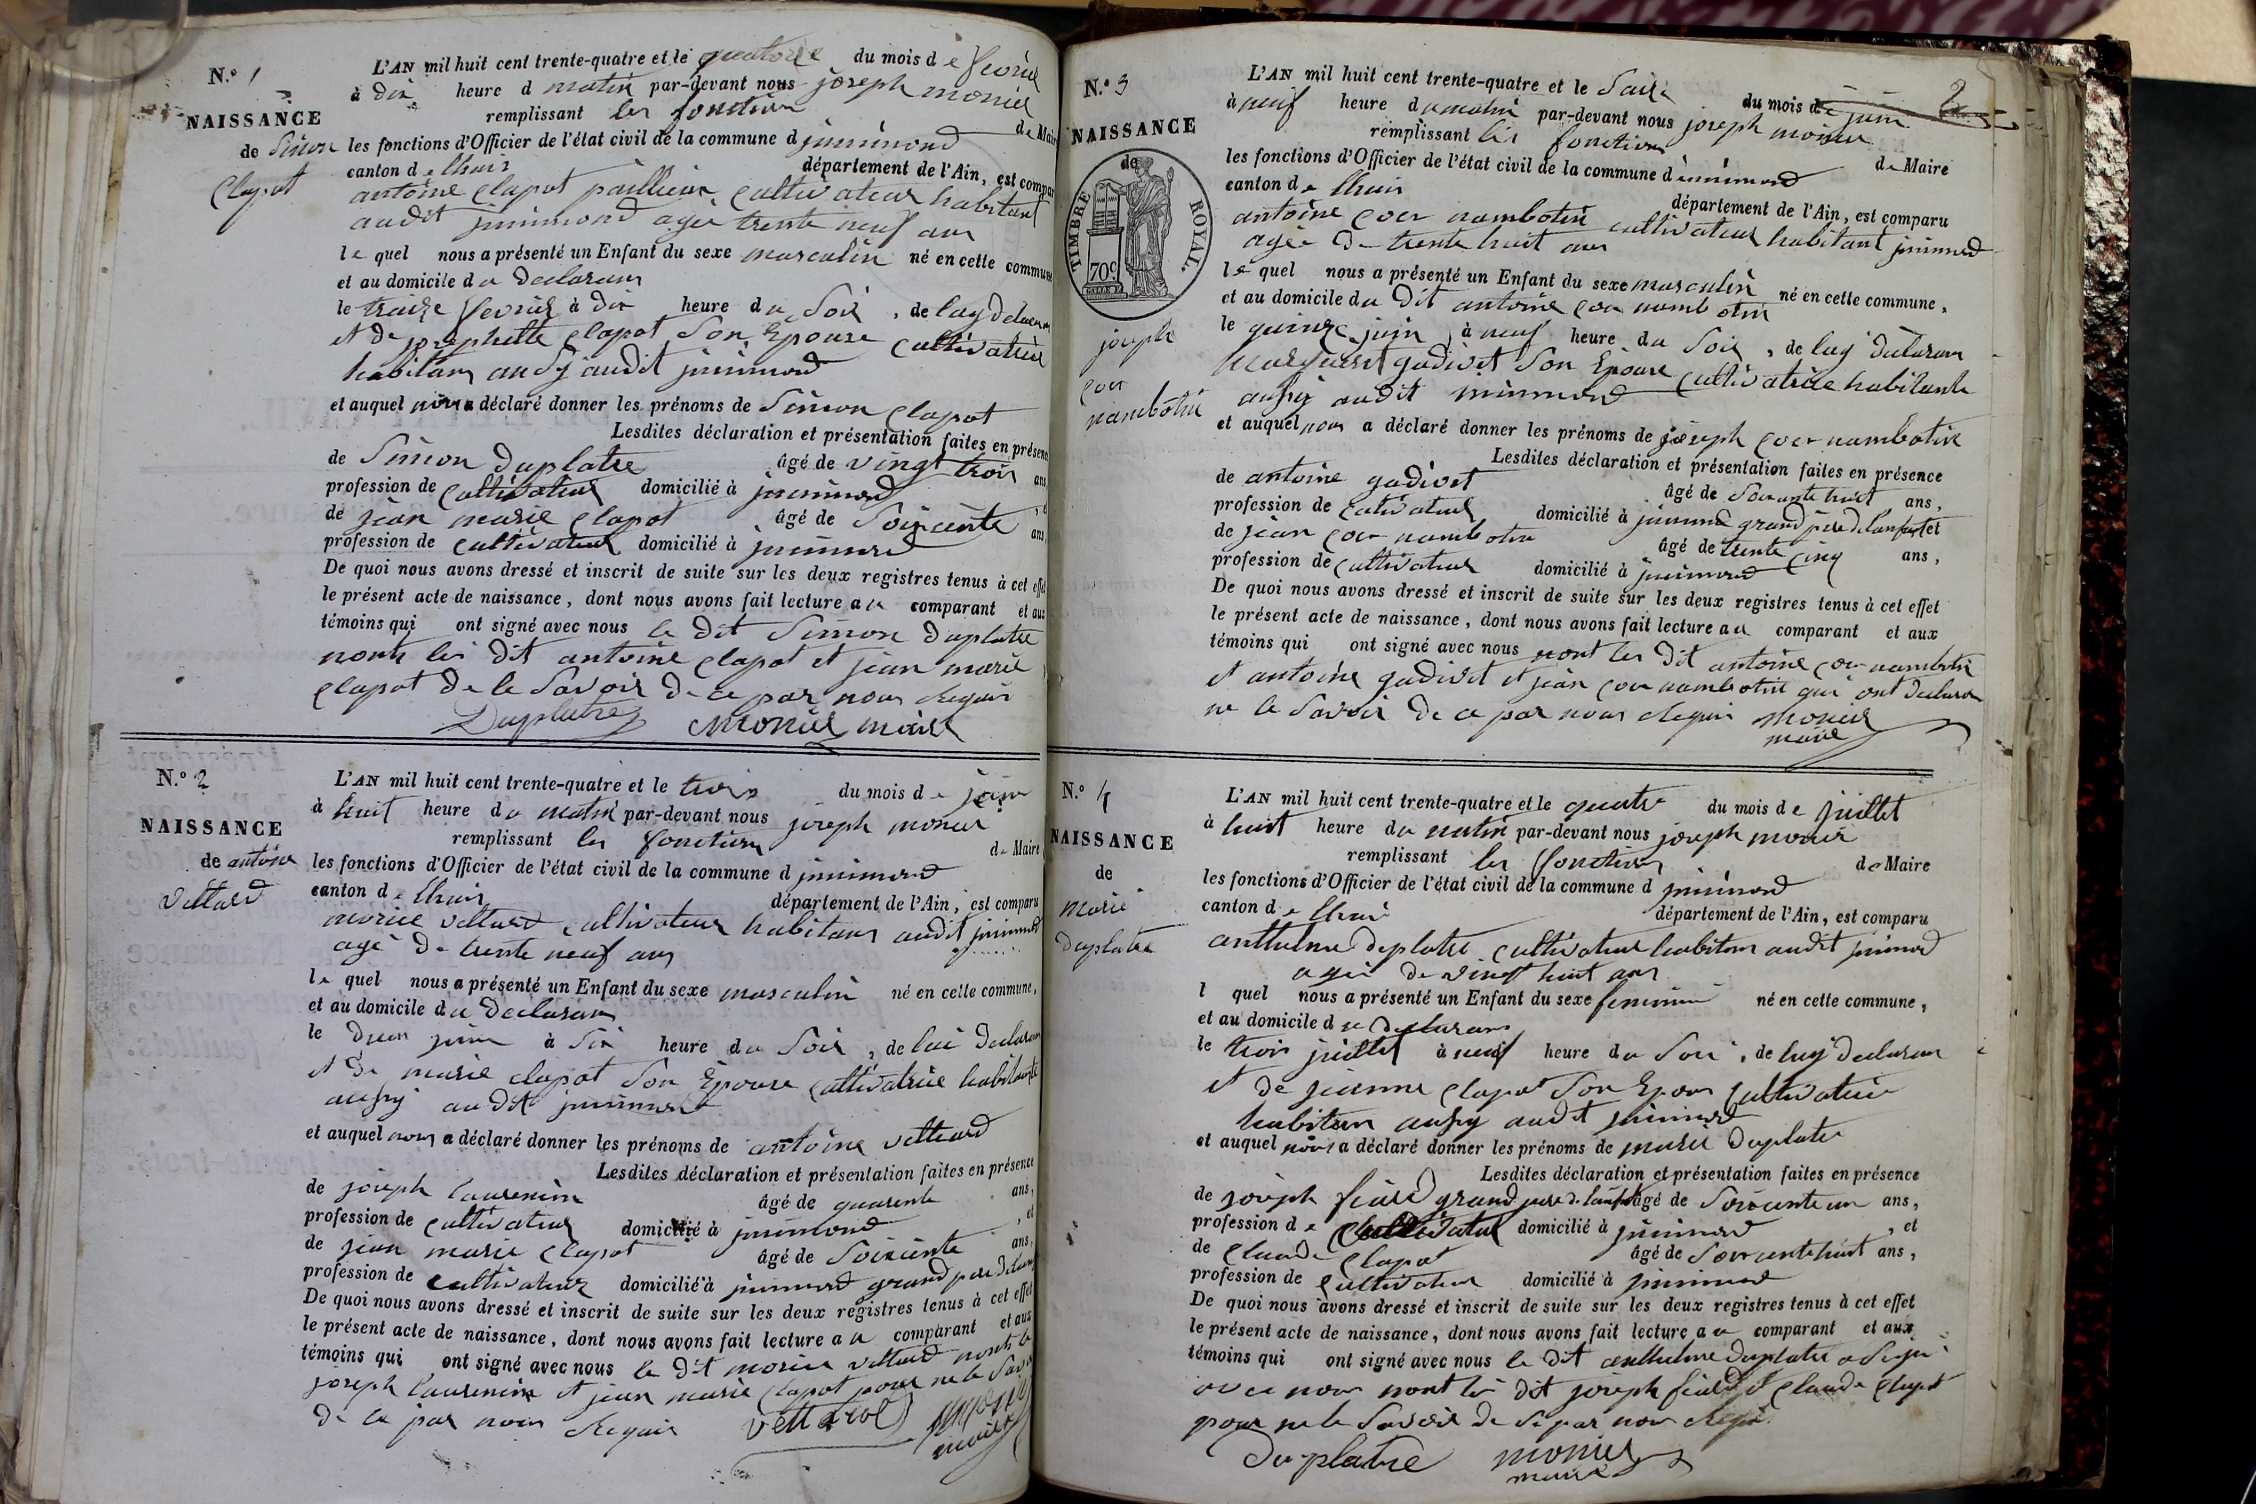 N.º 1
NAISSANCE
de Simon
Clapot
L'AN mil huit cent trente-quatre et le quatorze du mois de fevrié
à dix heure d matin par-devant nous joseph monier
remplissant les fonction de Maire
les fonctions d'Officier de l'état civil de la commune d jnnimond
canton de lhuis département de l'Ain, est compar
antoine Clapot paillieux Cultivateur habitant
audit jnnimond agée trente neuf ans
le quel nous a présenté un Enfant du sexe masculin né en cette commune
et au domicile du declarans
le traize fevrié à dix heure du Soir, de luy declaran
et de josephette Clapot Son Epouse Cultivatrice
habitans ausy audit jnnimond
et auquel nous a déclaré donner les prénoms de Simon Clapot
Lesdites déclaration et présentation faites en présenc
de Simon Duplatre âgé de vingt trois ans
profession de Cultivateur domicilié à jnnimond
de jean marie Clapot âgé de Soixcente ans
profession de Cultivateur domicilié à jnnimond
De quoi nous avons dressé et inscrit de suite sur les deux registres tenus à cet effet
le présent acte de naissance, dont nous avons fait lecture au comparant et aux
témoins qui ont signé avec nous le dit Simon Duplatre
nont les dit antoine Clapot et jean marie
Clapot de le Savoir de ce par nous Requis
Duplatre monier maire
N.º 2
NAISSANCE
de antoine
Vettard
L'AN mil huit cent trente-quatre et le trois du mois de juin
à huit heure du matin par-devant nous joseph monier
remplissant les fonction de Maire
les fonctions d'Officier de l'état civil de la commune d jnnimond
canton de lhuis département de l'Ain, est comparu
morice vettard Cultivateur habitans audit jnnimond
agé de trente neuf ans
le quel nous a présenté un Enfant du sexe masculin né en cette commune,
et au domicile du declarans
le deux juin à Six heure du Soir, de lui declaran
et de marie Clapot Son Epouse Cultivatrice habitante
aussy au dit jnnimond
et auquel nous a déclaré donner les prénoms de antoine vettard
Lesdites déclaration et présentation faites en présence
de joseph laurencin âgé de quarente ans,
profession de Cultivateur domicilié à jnnimond, et
de jean marie Clapot âgé de Soixcente ans,
profession de Cultivateur domicilié à jnnimond grand pere
De quoi nous avons dressé et inscrit de suite sur les deux registres tenus à cet effet
le présent acte de naissance, dont nous avons fait lecture au comparant et aux
témoins qui ont signé avec nous le dit morice vettard nont le
joseph laurencin et jean marie Clapot pour ne le Savoir
de ce par nous Requis vettard monier
maire
N.º 3
NAISSANCE
de
TIMBRE ROYAL.
70c
joseph
Coer
nambotin
2
L'AN mil huit cent trente-quatre et le Saize du mois de juin
à neuf heure du matin par-devant nous joseph monier
remplissant les fonctions de Maire
les fonctions d'Officier de l'état civil de la commune d innimond
canton de lhuis département de l'Ain, est comparu
antoine Coer nambotin cultivateur habitant jnnimond
agée de trente huit ans
le quel nous a présenté un Enfant du sexe masculin né en cette commune,
et au domicile du dit antoine Coer nambotin
le quinze juin à neuf heure du Soir, de luy déclaran
Marguerit gudivet Son Epouse Cultivatrice habitante
aussy audit innimond
et auquel nous a déclaré donner les prénoms de joseph Coer nambotin
Lesdites déclaration et présentation faites en présence
de antoine gudivet âgé de Soixante huit ans,
profession de Cultivateur domicilié à jnnimond grand père de lanfant et
de jean Coer nambotin âgé de trente Cinq ans,
profession de Cultivateur domicilié à jnnimond
De quoi nous avons dressé et inscrit de suite sur les deux registres tenus à cet effet
le présent acte de naissance, dont nous avons fait lecture au comparant et aux
témoins qui ont signé avec nous nont les dit antoine Coer nambotin
et antoine gudivet et jean Coer nambotin qui ont declaré
ne le Savoir de ce par nous Requis monier
maire
N.º 4
NAISSANCE
de
Marie
Duplatre
L'AN mil huit cent trente-quatre et le quatre du mois de juillet
à huit heure du matin par-devant nous joseph monier
remplissant les fonctions de Maire
les fonctions d'Officier de l'état civil de la commune d jnnimond
canton de lhuis département de l'Ain, est comparu
anthelme Duplatre Cultivateur habitans audit jnnimond
agée de vingt huit ans
l quel nous a présenté un Enfant du sexe feminin né en cette commune,
et au domicile du declarans
le trois juillet à neuf heure du Soir, de luy declaran
et de jeanne Clapot Son Epous Cultivatrice
habitans aussy audit jnnimond
et auquel nous a déclaré donner les prénoms de marie Duplatre
Lesdites déclaration et présentation faites en présence
de joseph fiard grand pere de lanfant âgé de Soixcente un ans,
profession de Cultivateur domicilié à jnnimond, et
de Claude Clapot âgé de Soixcente huit ans,
profession de Cultivateur domicilié à jnnimond
De quoi nous avons dressé et inscrit de suite sur les deux registres tenus à cet effet
le présent acte de naissance, dont nous avons fait lecture au comparant et aux
témoins qui ont signé avec nous le dit anthelme Duplatre a Signé
avec nous nont les dit joseph fiard et Claude Clapot
pour ne le Savoir de Se par nous Requis
Duplatre monier
maire